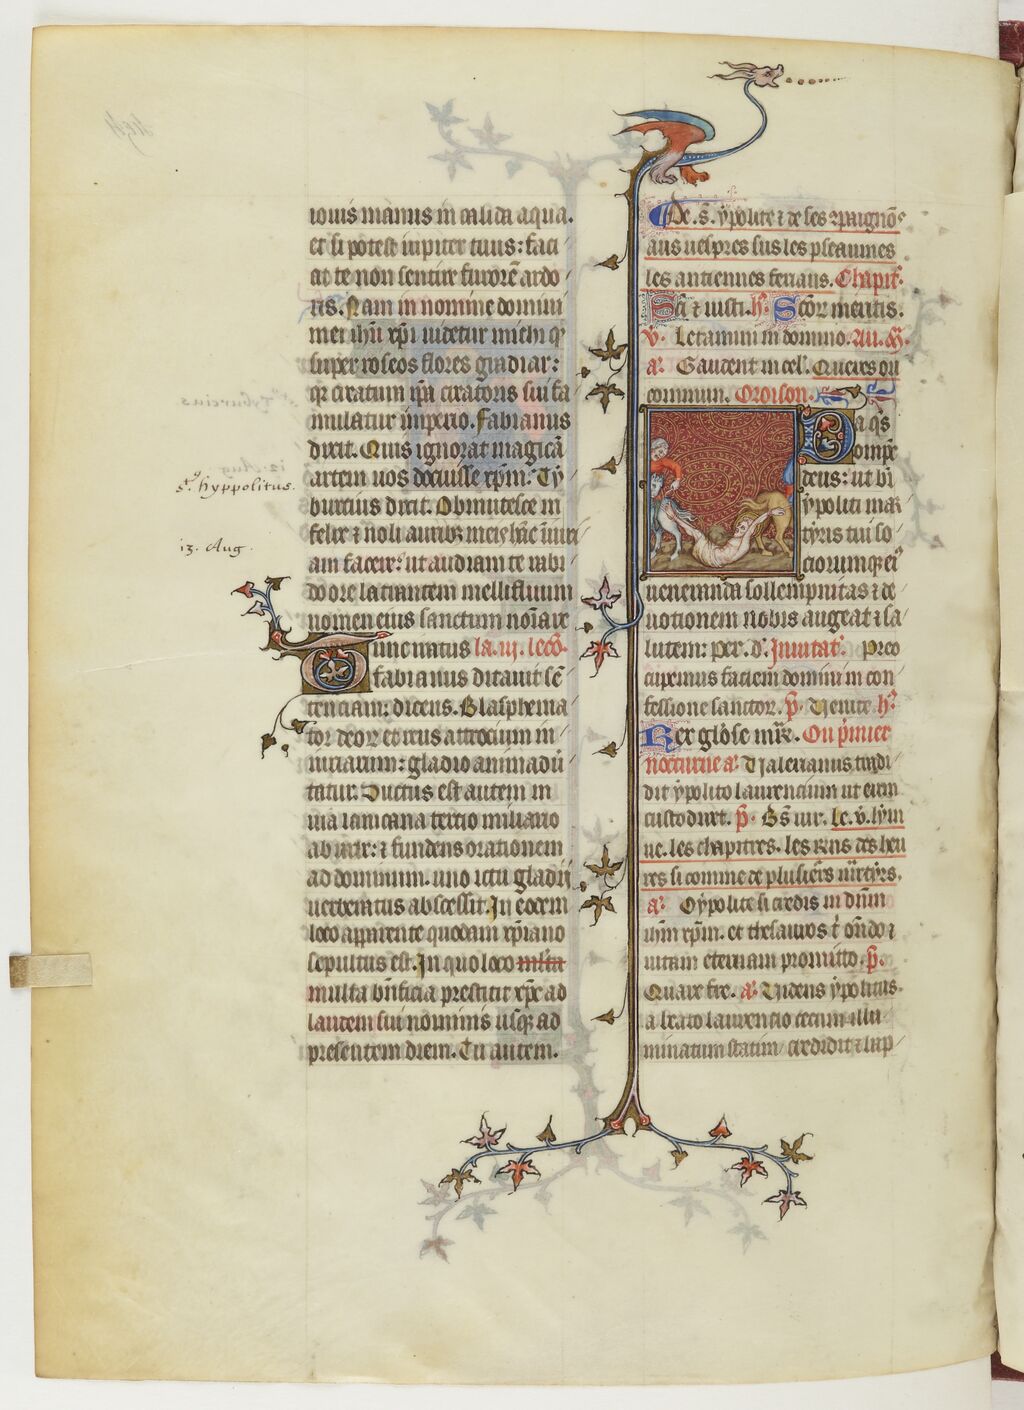 iouis manus in calida aqua.
et si potest iupiter tuus: faci
at te non sentire furorē ardo
ris. Nam in nomine domini
mei ihū xpi uidetur michi q
super roseos flores gradiar:
qr creatum ipā creatoris sui fa
mulatur imperio. Fabianus
dixit. Quis ignorat magicā
artem uos docuisse xpm. Ty
burtius dixit. Obmutesce in
felix et noli auribus meis hāc iniuri
am facere: ut audiam te rabi
do ore latrantem mellifluum
nomen eius sanctum noīare
Tunc iratus la .iij. lecō.
fabianus dictauit sē
tenciam: dicens. Blasphema
tor deor et reus attrocium in
iuriarum: gladio animaduer
tatur. Ductus est autem in
uia lauicana tercio miliario
ab urbe: et fundens orationem
ad dominum. uno ictu gladii
uerberatus abscessit. In eodem
loco apparente quodam xpiano
sepultus est. In quo loco
multa bnficia prestitit xpc ad
laudem sui nominis usq ad
presentem diem. Tu autem.
s. hyppolitus.
13. Aug.
De .s. ypolite et de ses 9paignōs
aus uespres sus les pseaumes
les antiennes feriaus. Chapit.
Sci et iusti. h. Scōr meritis.
v. Letamini in domino. Au. M.
a. Gaudent in cel. Queres ou
commun. Oroison.
Da qs
omnipo
deus: ut bti
ypoliti mar
tyris tui so
ciorumq ei
ueneranda sollempnitas et de
uotionem nobis augeat et sa
lutem: per. d. Inuitat. Preo
cupemus faciem domini in con
fessione sanctor. p. Uenite h.
Rex glose mr. Ou pmier
nocturne a. Ualerianus tradi
dit ypolito laurencium ut eum
custodiret. p. Bs uir. Le. v. lym
ne. les chapitres. les Rns des heu
res si comme de plusieurs martyrs.
a. O ypolite si credis in dnm
ihm xpm. et thesauros t ondo et
uitam eternam promitto. p.
Quare fre. a. Uidens ypolitus
a beato laurencio cecum illu
minatum statim credidit et bap